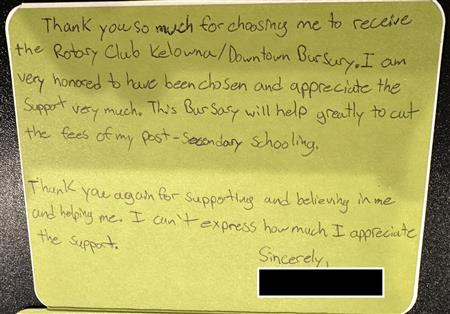 Thank you so much for choosing me to receive
the Rotary Club Kelowna/Downtown Bursary. I am
very honored to have been chosen and appreciate the
support very much. This Bursary will help greatly to cut
the fees of my post-secondary schooling.
Thank you again for supporting and believing in me
and helping me. I can't express how much I appreciate
the support.
Sincerely,